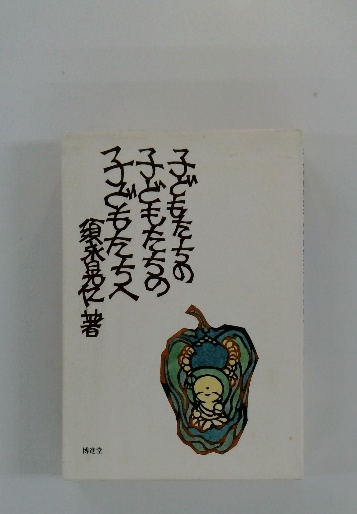 子どもたちの
子どもたちの
子どもたちへ
須永晃仁・著
博進堂